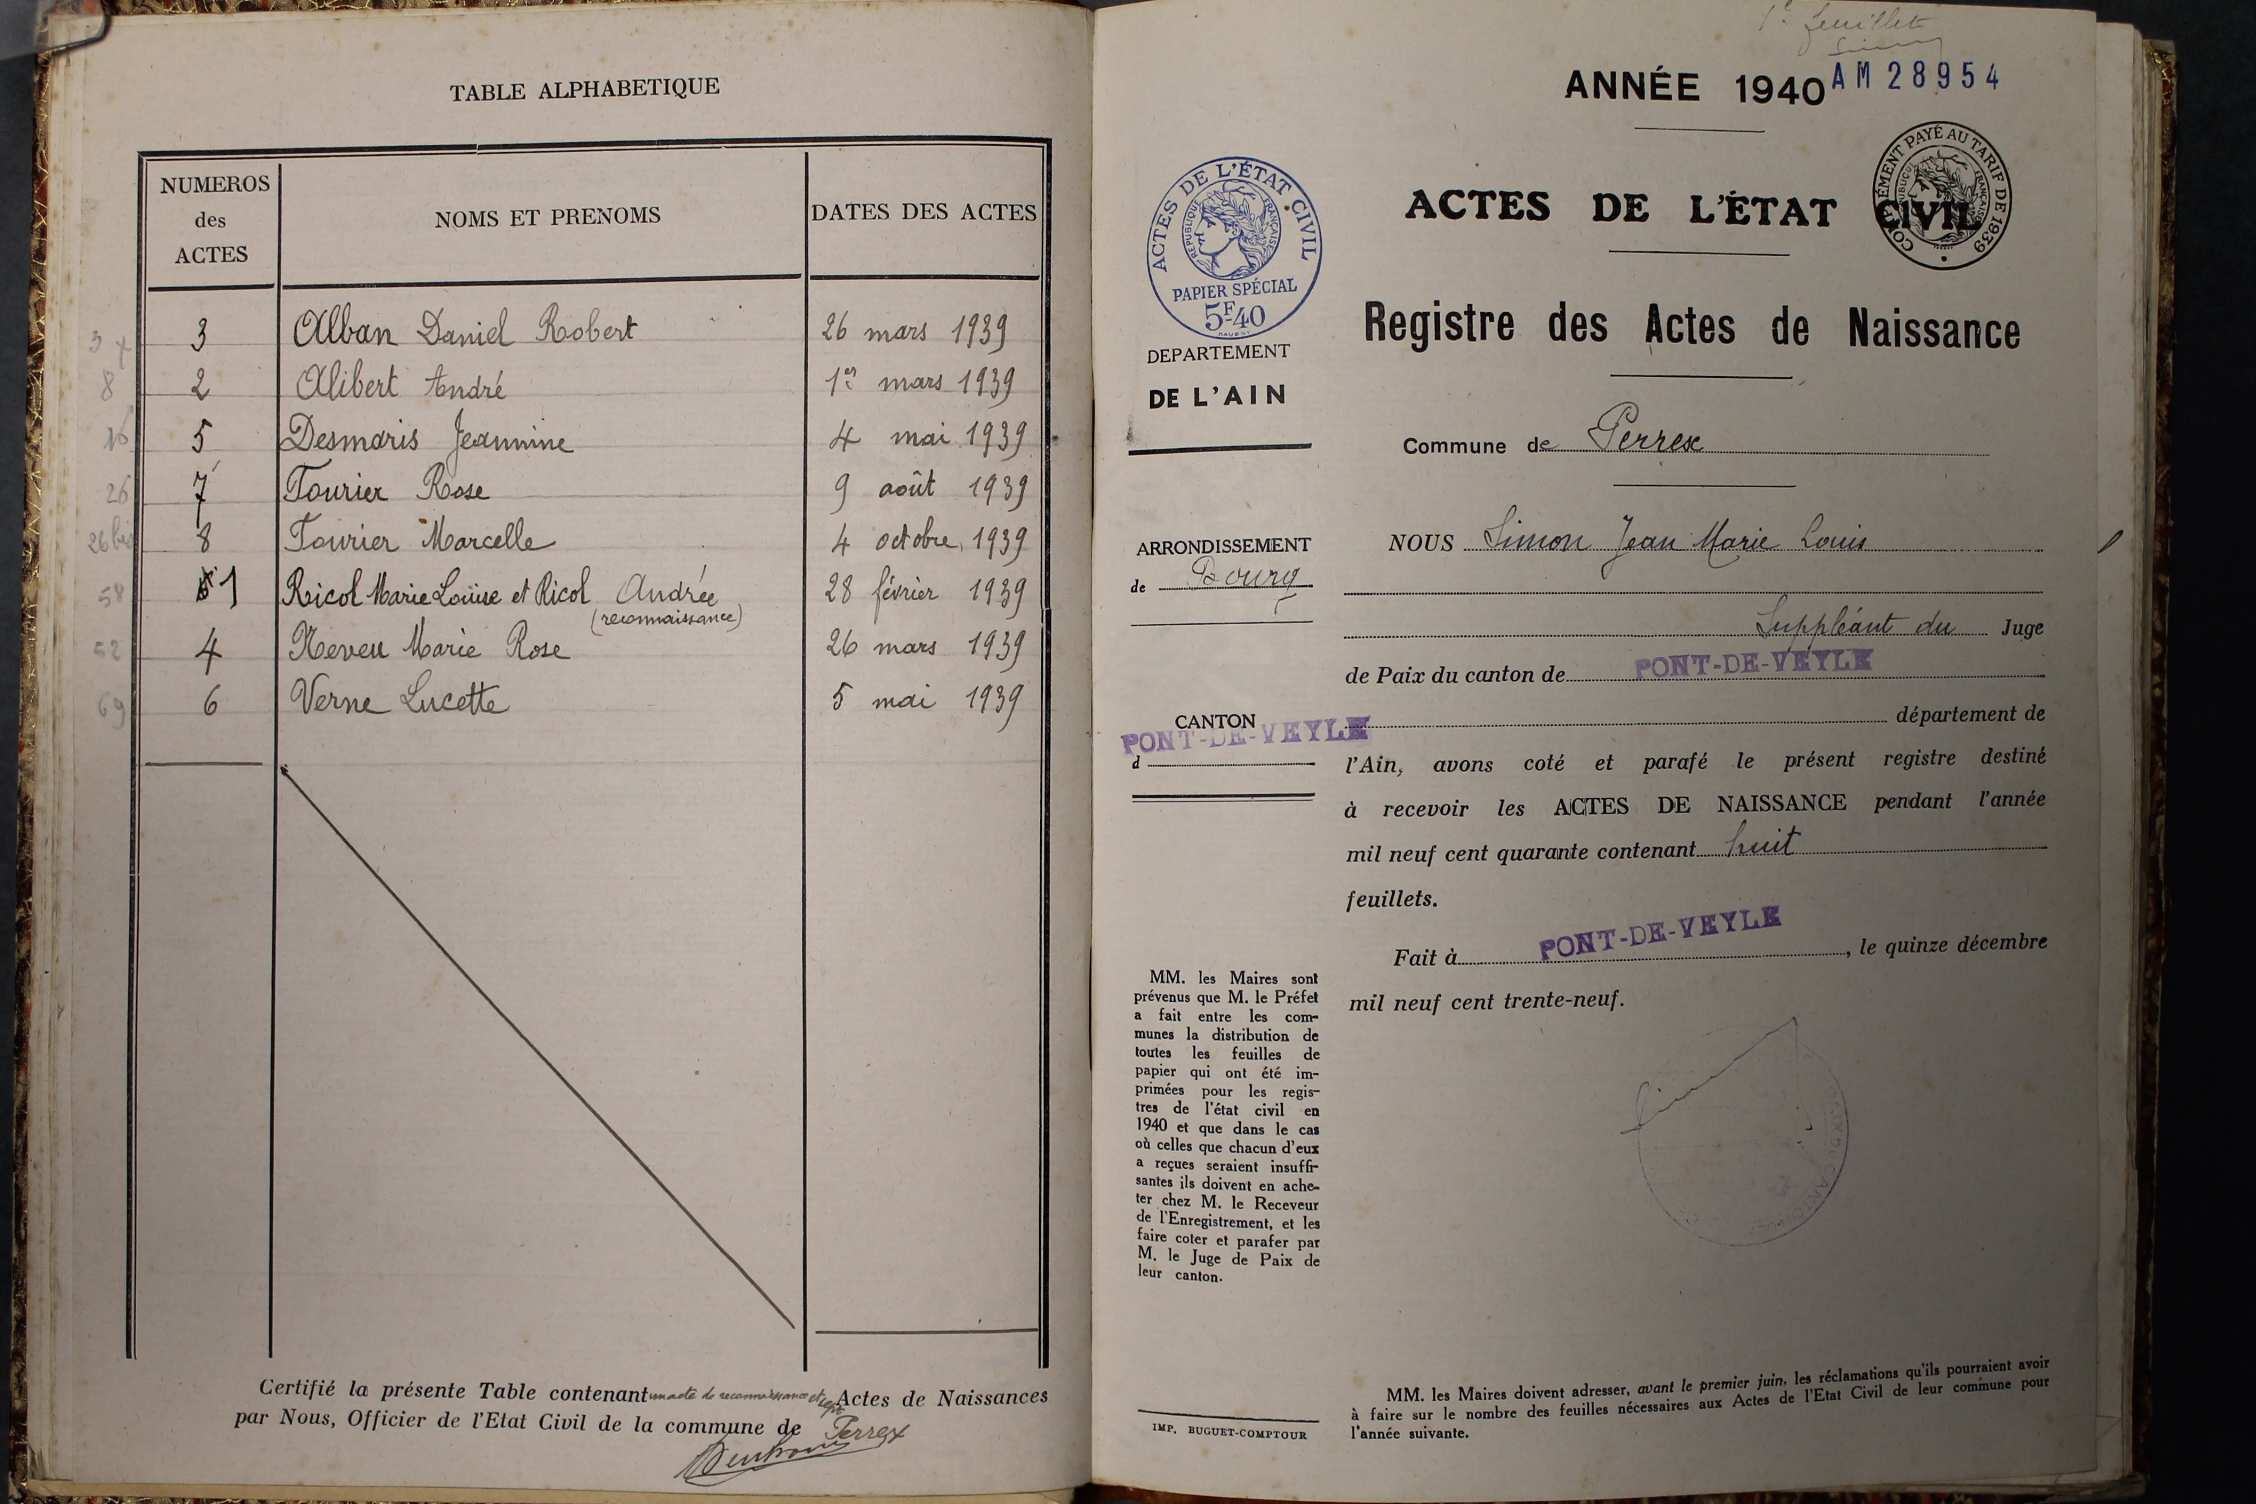 TABLE ALPHABETIQUE
NUMEROS des ACTES
NOMS ET PRENOMS
DATES DES ACTES
3 Alban Daniel Robert 26 mars 1939
8 2 Alibert André 1er mars 1939
16 5 Desmaris Jeannine 4 mai 1939
26 7 Fourier Rose 9 août 1939
26 bis 8 Fourier Marcelle 4 octobre 1939
58 1 Ricol Marie Louise et Ricol Andrée 28 février 1939
(reconnaissance)
52 4 Neveu Marie Rose 26 mars 1939
69 6 Verne Lucette 5 mai 1939
Certifié la présente Table contenant un acte de reconnaissance et sept Actes de Naissances
par Nous, Officier de l'Etat Civil de la commune de Perrex
1er feuillet
ANNÉE 1940 AM 28954
ACTES DE L'ÉTAT CIVIL
RÉPUBLIQUE FRANÇAISE
PAPIER SPÉCIAL
5F40
COMPLÉMENT PAYÉ AU TARIF DE 1939
ACTES DE L'ÉTAT CIVIL
Registre des Actes de Naissance
DEPARTEMENT
DE L'AIN
Commune de Perrex
ARRONDISSEMENT
de Bourg
CANTON
PONT-DE-VEYLE
d
NOUS Simon Jean Marie Louis
Suppléant du Juge
de Paix du canton de PONT-DE-VEYLE
département de
l'Ain, avons coté et parafé le présent registre destiné
à recevoir les ACTES DE NAISSANCE pendant l'année
mil neuf cent quarante contenant huit
feuillets.
Fait à PONT-DE-VEYLE, le quinze décembre
mil neuf cent trente-neuf.
MM. les Maires sont
prévenus que M. le Préfet
a fait entre les com-
munes la distribution de
toutes les feuilles de
papier qui ont été im-
primées pour les regis-
tres de l'état civil en
1940 et que dans le cas
où celles que chacun d'eux
a reçues seraient insuffi-
santes ils doivent en ache-
ter chez M. le Receveur
de l'Enregistrement, et les
faire coter et parafer par
M. le Juge de Paix de
leur canton.
IMP. BUGUET-COMPTOUR
MM. les Maires doivent adresser, avant le premier juin, les réclamations qu'ils pourraient avoir
à faire sur le nombre des feuilles nécessaires aux Actes de l'Etat Civil de leur commune pour
l'année suivante.